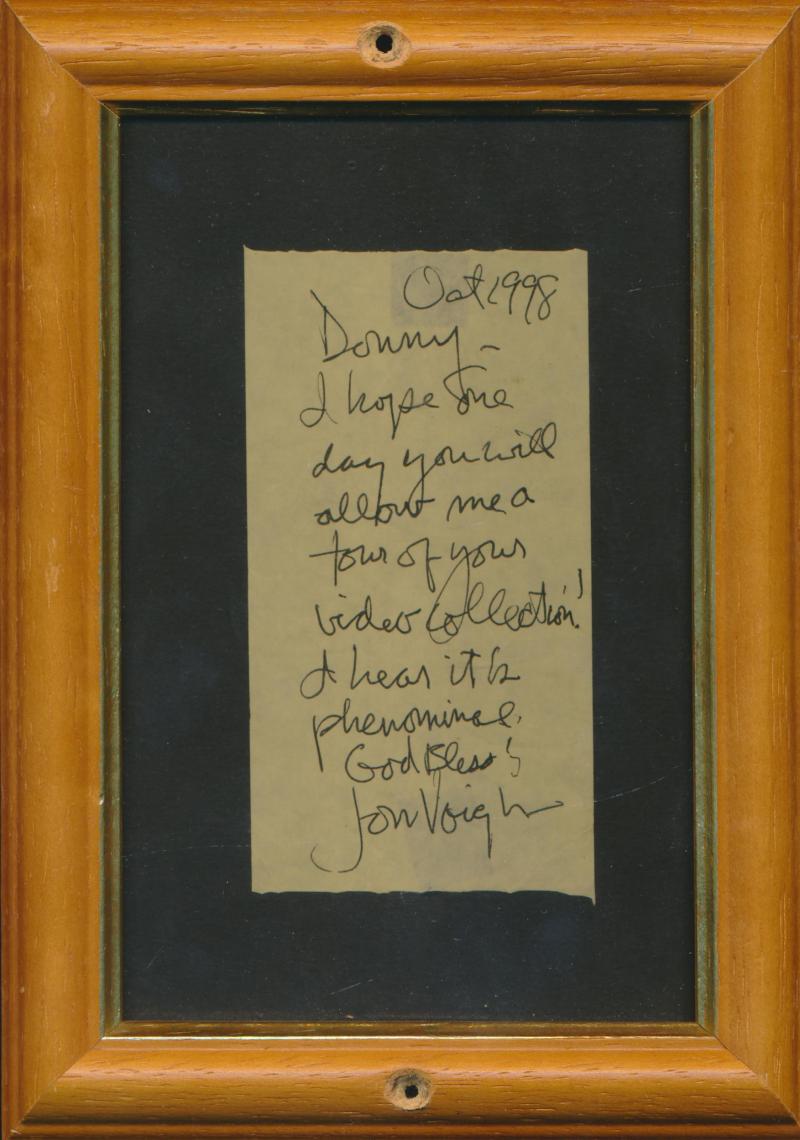 Oct 1998
Donny –
I hope one
day you will
allow me a
tour of your
video collection!
I hear it is
phenominal.
God Bless!
Jon Voight